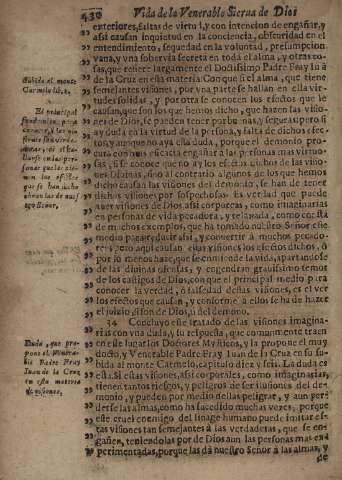 430
Vida de la Venerable Sierua de Dios
exteriores, faltas de virtud, y con intencion de engañar, y
assi causan inquietud en la conciencia, obscuridad en el
entendimiento, sequedad en la voluntad, presumpcion
vana, y vna soberuia secreta en todo el alma, y otras co-
sas, que refiere largamente el Doctissimo Padre Fray Iuã
de la Cruz en esta materia. Con que si el alma, que tiene
semejantes visiones, por vna parte se hallan en ella vir-
tudes solidas, y por otra se conocen los efectos que le
causan, que son los que hemos dicho, que hazen las visio-
nes de Dios, se pueden tener por buenas, y seguras: pero si
ay duda en la virtud de la persona, y falta de dichos efec-
tos, y aunque no aya esta duda, porque el demonio pro-
cura con mas eficacia engañar á las personas mas virtuo-
sas, si se conoce que no ay los efectos dichos de las visio-
nes Diuinas, sino al contrario algunos de los que hemos
dicho causan las visiones del demonio, se han de tener
dichas visiones por sospechosas. Es verdad que puede
auer visiones de Dios assi corporeas, como imaginarias
en personas de vida pecadora, y relaxada, como consta
de muchos exemplos, que ha tomado nuestro Señor este
medio para reducir assi, y conuertir á muchos pecado-
res,
por lo menos, que se han de
de las diuinas ofensas, y engendran grauissimo temor
de los castigos de Dios, con que el principal medio para
conocer la verdad, ó falsedad destas visiones, es el ver
los efectos que causan, y conforme á ellos se ha de hazer
el juizio, si son de Dios, ù del demonio.
34 Concluyo este tratado de las visiones imagina-
rias con vna duda, y su respuesta, que comunmente traen
en este lugar los Doctores Mysticos, y la propone el muy
docto, y Venerable Padre Fray Iuan de la Cruz en su su-
bida al monte Carmelo, capitulo diez y seis. La duda es
esta. Si estas visiones, assi corporales, como imaginarias,
tienen tantos riesgos, y peligros de ser ilusiones del de-
monio, y pueden por medio dellas peligrar, y aun per-
derse las almas, como ha sucedido muchas vezes, porque
este cruel enemigo del linage humano puede imitar vi-
siones tan semejantes á las verdaderas, que se en-
gañen, teniendolas por de Dios aun las personas mas ex-
perimentadas, porque las dá nuestro Señor á las almas, y
de
Subida al monte
Carmelo lib. 2.
El principal
fundamento para
conocer, si las vi-
siones son verda-
deras,
Señor.
Duda, que pro-
pone el Venera-
ble Padre Fray
Iuan de la Cruz
en esta materia
de visiones.